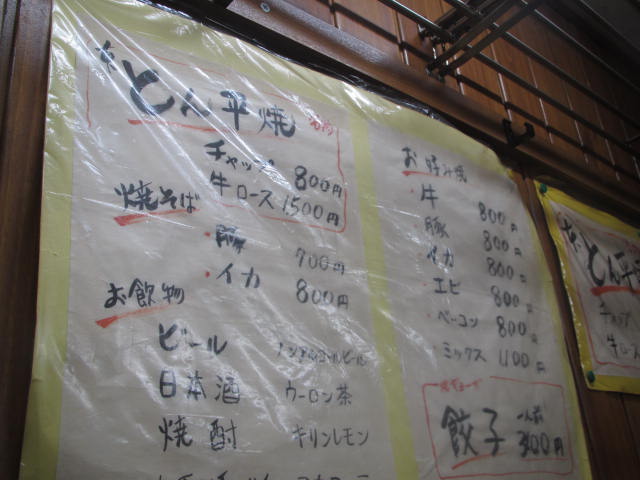 とん平焼
チャップ 800円
牛ロース 1,500円
焼そば
・豚 700円
・イカ 800円
お飲物
ビール ノンアルコールビール
日本酒 ウーロン茶
焼酎 キリンレモン
お好み焼
・牛 800円
・豚 800円
・イカ 800円
・エビ 800円
・ベーコン 800円
・ミックス 1,100円
餃子 一人前 300円
とん平
チャップ
牛ロ